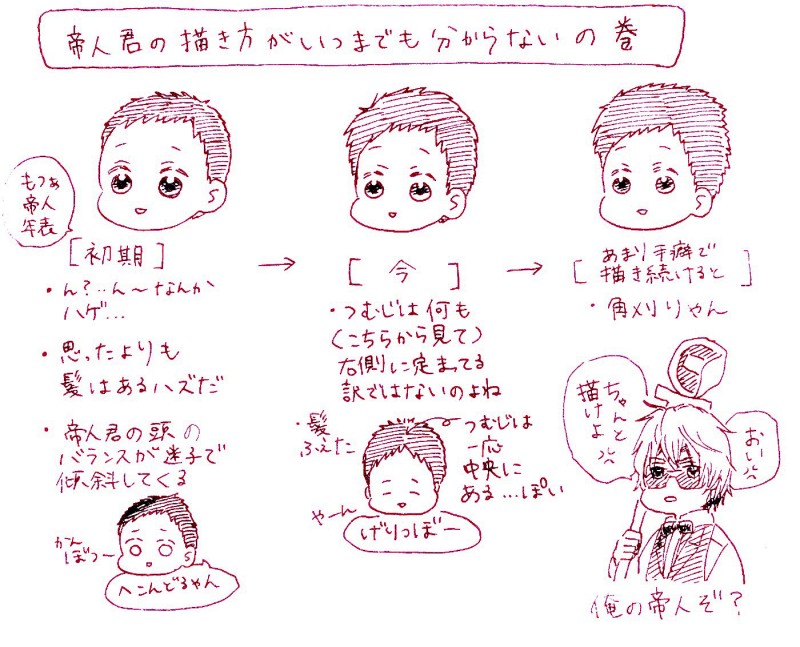 帝人君の描き方がいつまでも分からないの巻
もつぁ
帝人
年表
[初期]
・ん?…ん〜なんか
ハゲ…
・思ったよりも
髪はあるハズだ
・帝人君の頭の
バランスが迷子で
傾斜してくる
かん
ぼつ〜
へこんどるやん
→
[今]
・つむじは何も
(こちらから見て)
右側に定まってる
訳ではないのよね
・髪
ふえた
つむじは
一応
中央に
ある…ぽい
やーん
げりっぼー
→
[あまり手癖で
描き続けると]
・角刈りやん
ちゃんと
描けよ
おい
俺の帝人ぞ?